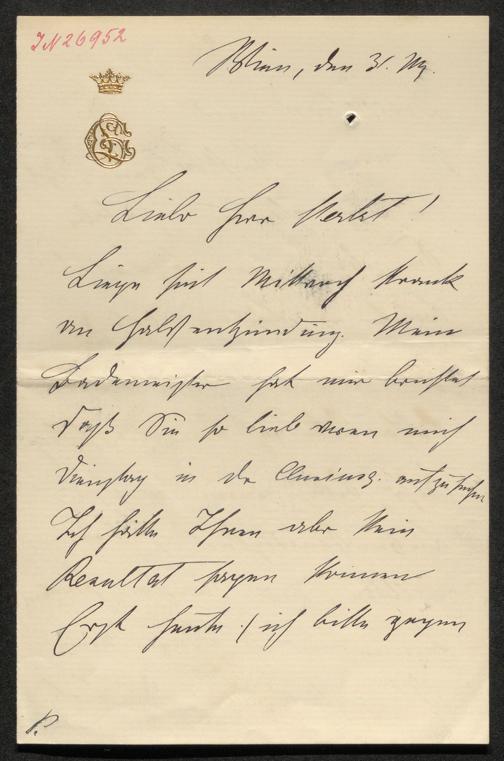 IN 26952
Wien, den 31. Mz.
Lieber Herr
Liege seit Mittwoch krank
an Halsentzündung. Mein
Bademeister hat mir berichtet
daß Sie so lieb waren mich
Dienstag in der aufzusuchen
Ich hätte Ihnen aber kein
Resultat sagen können
Erst heute / ich bitte gegen